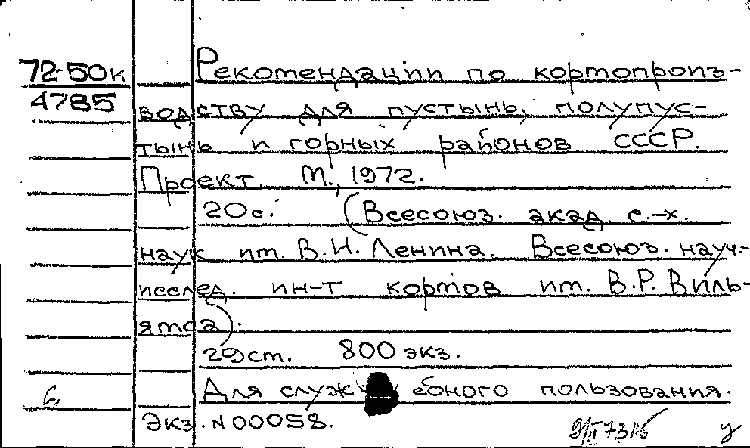 72-50к
4785
Рекомендации по кормопроиз-
водству для пустынь, полупус-
тынь и горных районов СССР.
Проект. М., 1972.
20 с. (Всесоюз. акад. с.-х.
наук им. В.И. Ленина. Всесоюз. науч-
исслед. ин-т кормов им. В.Р. Виль-
ямса).
800 экз.
Для служебного пользования.
Экз. N 00058.